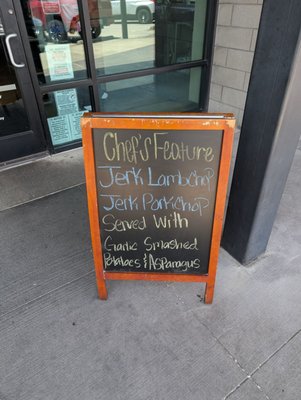 Chef's Feature
Jerk Lamb Chop
Jerk Pork Chop
Served With
Garlic Smashed
Potatoes & Asparagus